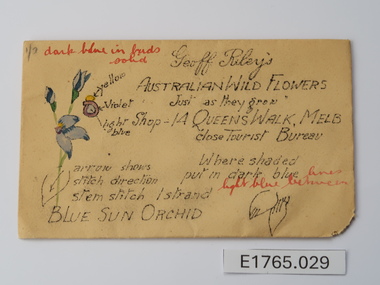 1/9 dark blue in buds
solid
Geoff Riley's
AUSTRALIAN WILD FLOWERS
"Just as they grow"
Shop - 14 QUEENS WALK, MELB
"close Tourist Bureau
yellow
violet
light
blue
arrow shows
stitch direction
stem stitch 1 strand
BLUE SUN ORCHID
Where shaded
put in dark blue lines
light blue between
E1765.029